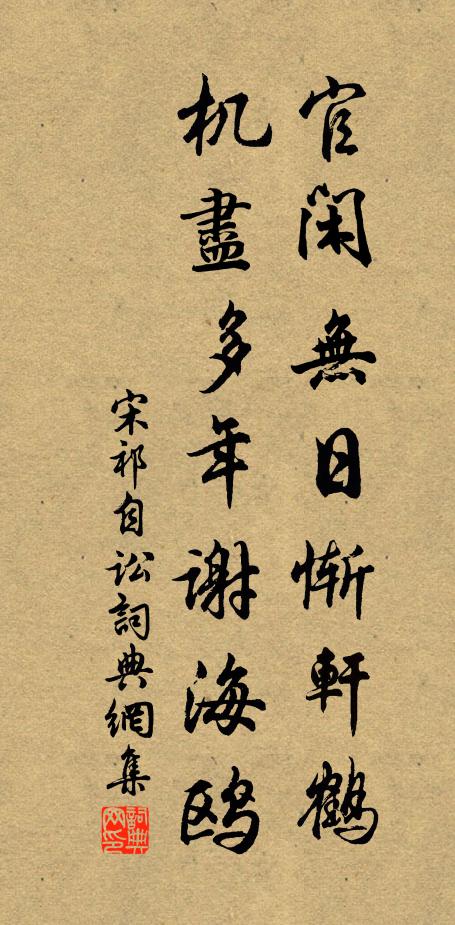 官闲無日慚軒鶴
机盡多年谢海鸥
宋祁自讼詞典網集
詞典网印